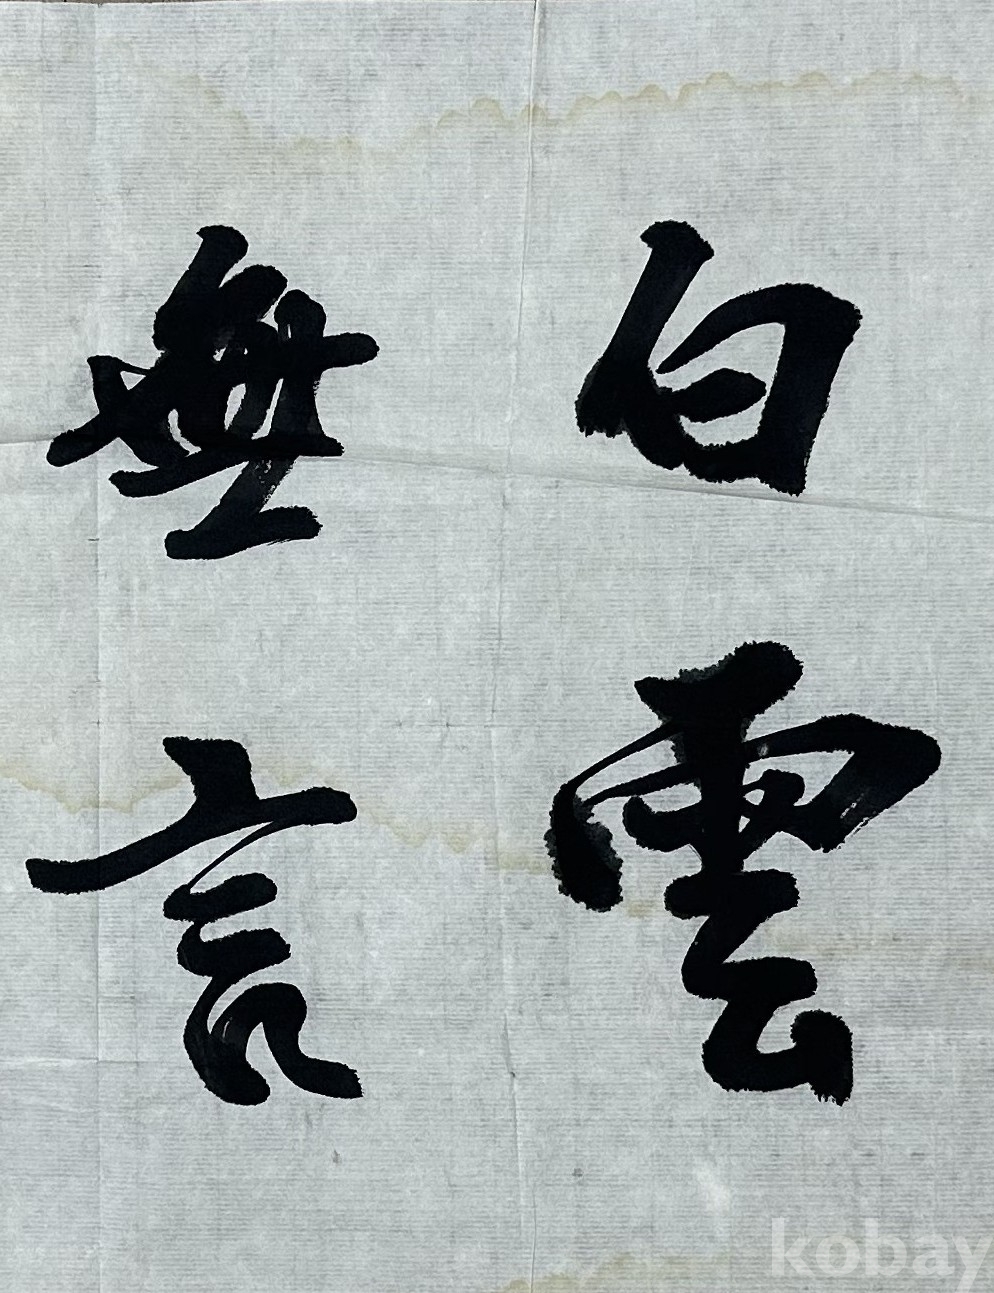 白雲
無言
kobay